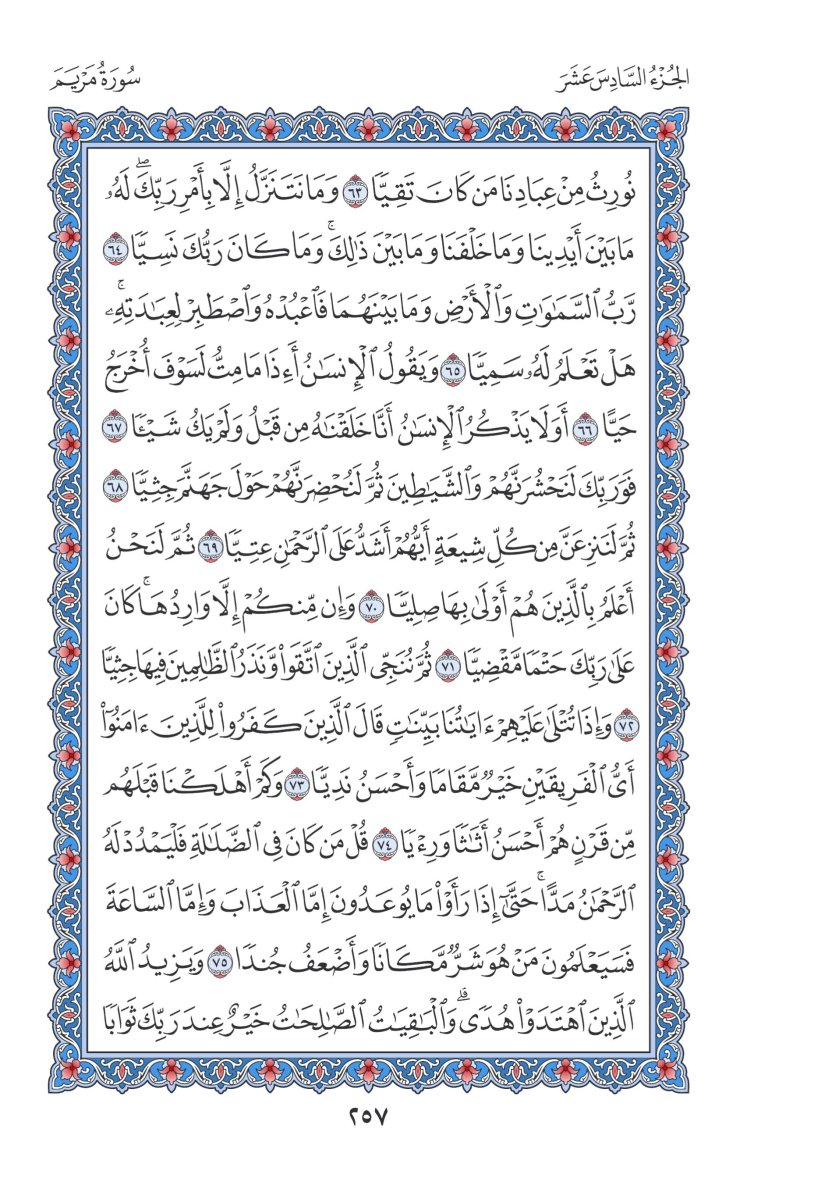 الجُزْءُ السَّادِسَ عَشَرَ
سُورَةُ مَرْيَمَ
نُورِثُ مِنْ عِبَادِنَا مَن كَانَ تَقِيًّا ٦٣ وَمَا نَتَنَزَّلُ إِلَّا بِأَمْرِ رَبِّكَۖ لَهُۥ
مَا بَيْنَ أَيْدِينَا وَمَا خَلْفَنَا وَمَا بَيْنَ ذَٰلِكَۚ وَمَا كَانَ رَبُّكَ نَسِيًّا ٦٤
رَّبُّ ٱلسَّمَٰوَٰتِ وَٱلْأَرْضِ وَمَا بَيْنَهُمَا فَٱعْبُدْهُ وَٱصْطَبِرْ لِعِبَٰدَتِهِۦۚ
هَلْ تَعْلَمُ لَهُۥ سَمِيًّا ٦٥ وَيَقُولُ ٱلْإِنسَٰنُ أَءِذَا مَا مِتُّ لَسَوْفَ أُخْرَجُ
حَيًّا ٦٦ أَوَلَا يَذْكُرُ ٱلْإِنسَٰنُ أَنَّا خَلَقْنَٰهُ مِن قَبْلُ وَلَمْ يَكُ شَيْـًٔا ٦٧
فَوَرَبِّكَ لَنَحْشُرَنَّهُمْ وَٱلشَّيَٰطِينَ ثُمَّ لَنُحْضِرَنَّهُمْ حَوْلَ جَهَنَّمَ جِثِيًّا ٦٨
ثُمَّ لَنَنزِعَنَّ مِن كُلِّ شِيعَةٍ أَيُّهُمْ أَشَدُّ عَلَى ٱلرَّحْمَٰنِ عِتِيًّا ٦٩ ثُمَّ لَنَحْنُ
أَعْلَمُ بِٱلَّذِينَ هُمْ أَوْلَىٰ بِهَا صِلِيًّا ٧٠ وَإِن مِّنكُمْ إِلَّا وَارِدُهَاۚ كَانَ
عَلَىٰ رَبِّكَ حَتْمًا مَّقْضِيًّا ٧١ ثُمَّ نُنَجِّى ٱلَّذِينَ ٱتَّقَوا۟ وَّنَذَرُ ٱلظَّٰلِمِينَ فِيهَا جِثِيًّا
٧٢ وَإِذَا تُتْلَىٰ عَلَيْهِمْ ءَايَٰتُنَا بَيِّنَٰتٍ قَالَ ٱلَّذِينَ كَفَرُوا۟ لِلَّذِينَ ءَامَنُوٓا۟
أَىُّ ٱلْفَرِيقَيْنِ خَيْرٌ مَّقَامًا وَأَحْسَنُ نَدِيًّا ٧٣ وَكَمْ أَهْلَكْنَا قَبْلَهُم
مِّن قَرْنٍ هُمْ أَحْسَنُ أَثَٰثًا وَرِءْيًا ٧٤ قُلْ مَن كَانَ فِى ٱلضَّلَٰلَةِ فَلْيَمْدُدْ لَهُ
ٱلرَّحْمَٰنُ مَدًّاۚ حَتَّىٰٓ إِذَا رَأَوْا۟ مَا يُوعَدُونَ إِمَّا ٱلْعَذَابَ وَإِمَّا ٱلسَّاعَةَ
فَسَيَعْلَمُونَ مَنْ هُوَ شَرٌّ مَّكَانًا وَأَضْعَفُ جُندًا ٧٥ وَيَزِيدُ ٱللَّهُ
ٱلَّذِينَ ٱهْتَدَوْا۟ هُدًىۗ وَٱلْبَٰقِيَٰتُ ٱلصَّٰلِحَٰتُ خَيْرٌ عِندَ رَبِّكَ ثَوَابًا
٢٥٧